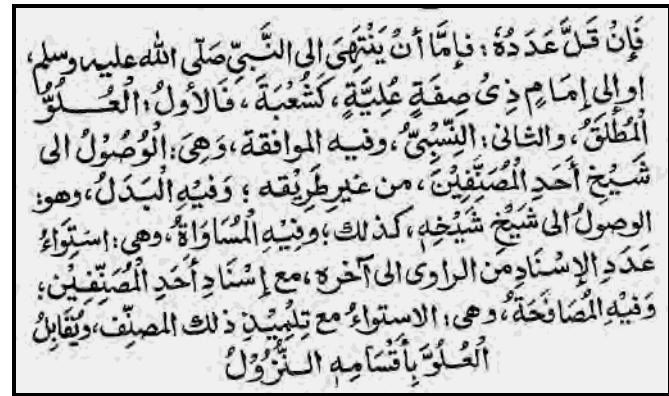 فَإِنْ قَلَّ عَدَدُهٗ؛ فإِمَّا أَنْ يَنْتَهِيَ الى النَّبِيِّ صَلّى الله عليه وسلم،
او إلى إِمَامٍ ذِىْ صِفَةٍ عُلِيَّةٍ، كَشُعْبَةَ، فَالأولُ: الْعُلُوُّ
الْمُطْلَقُ، والثانى: النِّسْبِىُّ، وفيه الموافقة، وَهِىَ: الْوُصُوْلُ الى
شَيْخِ أَحَدِ الْمُصَنِّفِيْنَ، من غيرِ طَرِيْقِه؛ وَفيْهِ الْبَدَلُ، وهو:
الوصولُ الى شَيْخِ شَيْخِهٖ، كذلك؛ وفِيْهِ الْمُسَاوَاةُ، وهى: اسْتِوَاءُ
عَدَدِ الإِسْنَادِ من الراوى الى آخره، مع إِسْنَادِ أَحَدِ الْمُصَنِّفِيْن؛
وَفيْهِ الْمُصَافَحَةُ، وهى: الاستواءُ مع تِلْمِيْذِ ذلك المصنِّف، ويُقَابِلُ
الْعُلُوَّ بِأَقْسَامِهٖ النُّزُوْلُ